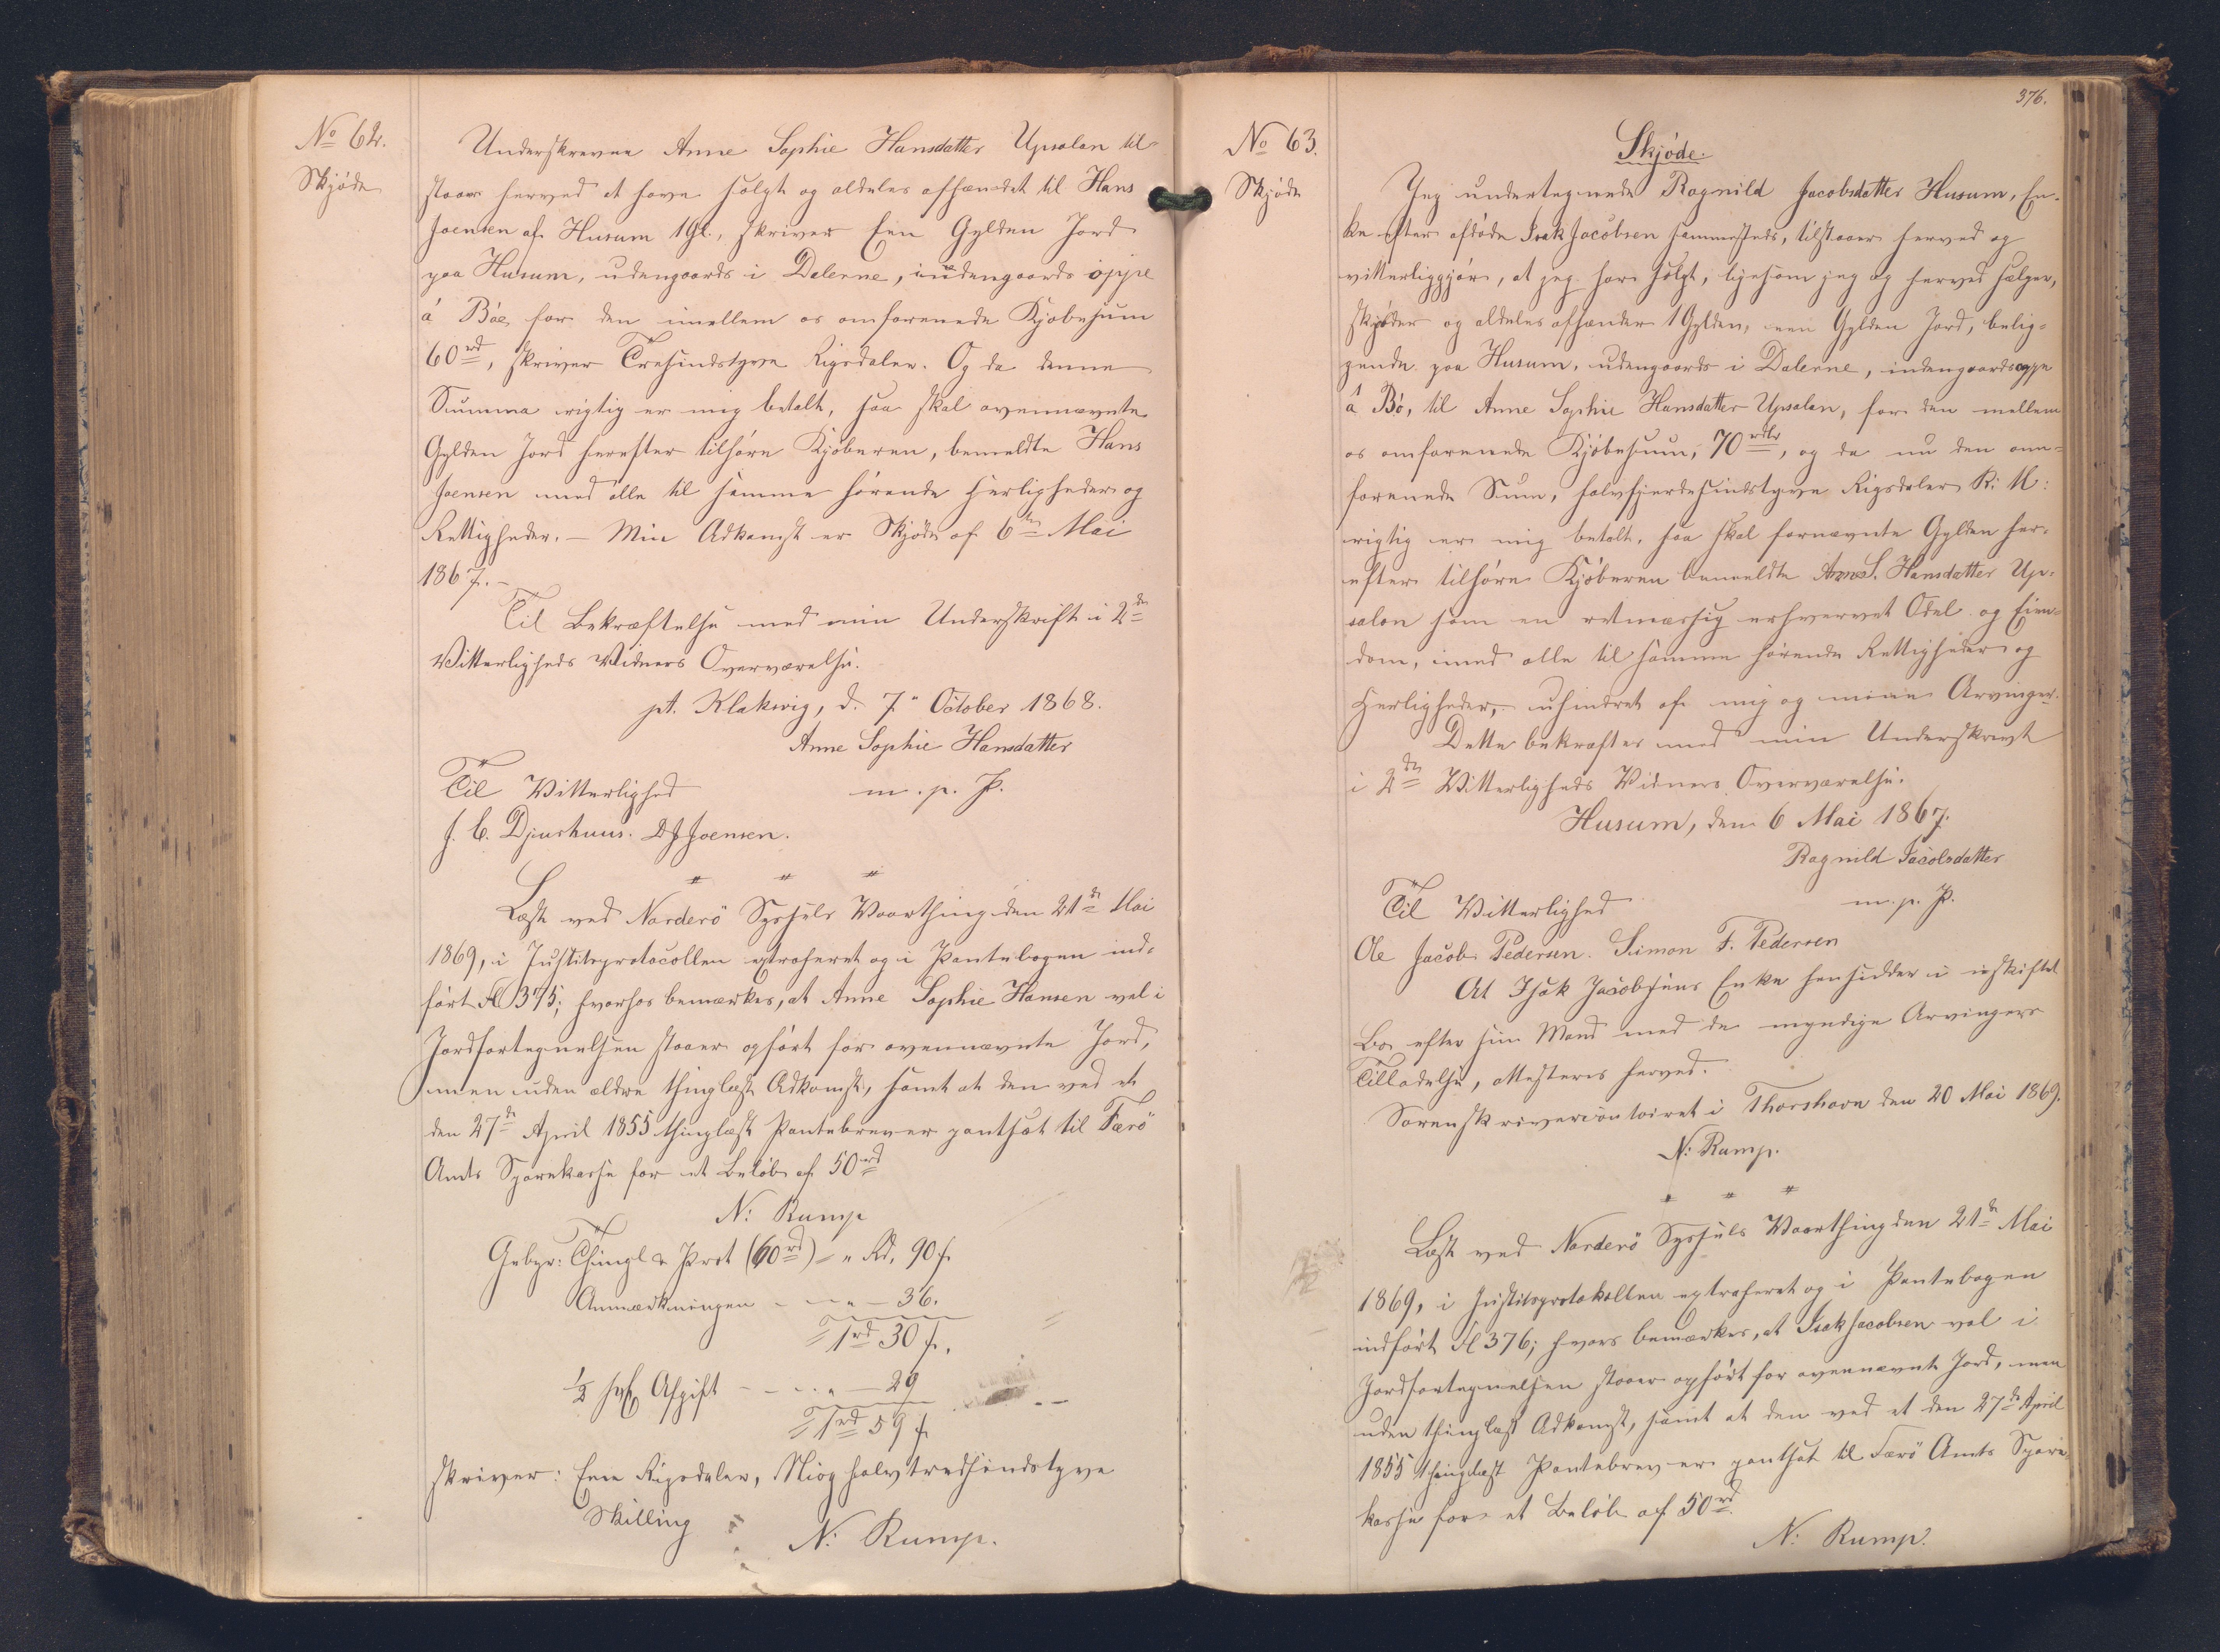 No 62.
Skjöde
Underskrevne Anne Sophie Hansdatter Upsalen til-
staaer herved at have solgt og aldeles afhændet til Hans
Joensen af Husum 1 Gl., skriver Een Gylden Jord
paa Husum, udengaards i Dalerne, indengaards oppe
á Bóe, for den imellem os omforenede Kjöbesum
60 rd, skriver Tresindstyve Rigsdaler. Og da denne
Summa rigtig er mig betalt, saa skal ovennævnte
Gylden Jord herefter tilhöre Kjöberen, bemeldte Hans
Joensen med alle til samme hörende Herligheder og
Rettigheder. – Min Adkomst er Skjöde af 6te Mai
1867. –
Til Bekræftelse med min Underskrift i 2de
Vitterligheds Vidners Overværelse.
pt. Klaksvig, d. 7" October 1868.
Anne Sophie Hansdatter
Til Vitterlighed m. p. P.
J. C. Djurhuus. D J Joensen.
Læst ved Norderö Syssels Vaarthing den 21de Mai
1869, i Justitsprotocollen extraheret og i Pantebogen ind-
fört Fl 375; hvorhos bemærkes, at Anne Sophie Hansen vel i
Jordfortegnelsen staaer opfört for ovennævnte Jord,
men uden ældre thinglæst Adkomst, samt at den ved et
den 27de April 1855 thinglæst Pantebrev er pantsat til Færö
Amts Sparekasse for et Belöb af 50 rd
N: Rump
Gebyr: Thingl & Prot (60 rd) = " Rd. 90 s.
Anmærkningen - - - " - 36.
= 1 rd 30 s.
½ pCt Afgift - - - " - 29
= 1 rd 59 s
skriver: Een Rigsdaler, Niog halvtredsindstyve
Skilling
N: Rump.
376.
No 63.
Skjöde
Skjöde.
Jeg undertegnede Ragnild Jacobsdatter Husum, En-
ke efter afdöde Isak Jacobsen sammesteds, tilstaaer herved og
vitterliggjör, at jeg har solgt, ligesom jeg og herved sælger,
skjöder og aldeles afhænder 1 Gylden, een Gylden Jord, belig-
gende paa Husum, udengaards i Dalerne, indengaards oppe
á Bó, til Anne Sophie Hansdatter Upsalen, for den mellem
os omforenede Kjöbesum, 70 rdlr, og da nu den om-
forenede Sum, halvfjerdesindstyve Rigsdaler R: M:
rigtig er mig betalt, saa skal fornævnte Gylden her-
efter tilhöre Kjöberen bemeldte Anne S. Hansdatter Up-
salen som en retmæssig erhvervet Odel og Eien-
dom, med alle til samme hörende Rettigheder og
Herligheder, uhindret af mig og mine Arvinger.
Dette bekræftes med min Underskrivt
i 2de Vitterligheds Vidners Overværelse.
Husum, den 6 Mai 1867.
Ragnild Jacobsdatter
Til Vitterlighed m. p. P.
Ole Jacob Pedersen. Simon F. Pedersen
At Isak Jacobsens Enke hensidder i uskiftet
Bo efter sin Mand med de myndige Arvingers
Tilladelse, attesteres herved.
Sorenskrivercontoiret i Thorshavn den 20 Mai 1869.
N: Rump.
Læst ved Norderö Syssels Vaarthing den 21de Mai
1869, i Justitsprotokollen extraheret og i Pantebogen
indfört Fl 376; hvors bemærkes, at Isak Jacobsen vel i
Jordfortegnelsen staaer opfört for ovennævnte Jord, men
uden thinglæst Adkomst, samt at den ved et den 27de April
1855 thinglæst Pantebrev er pantsat til Færö Amts Spare-
kasse for et Belöb af 50 rd.
N: Rump.